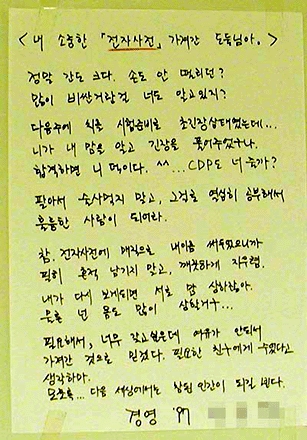 < 내 소중한 「전자사전」 가져간 도둑님아. >
정말 간도 크다. 손도 안 떨리던?
많이 비싼거라는걸 너도 알고있지?
다음주에 치를 시험준비로 초긴장상태였는데...
니가 내 맘을 알고 긴장을 풀어주었구나.
합격하면 니 덕이다. ^^ ... CDP도 너 줄까?
팔아서 술사먹지 말고, 그걸로 열심히 공부해서
훌륭한 사람이 되어라.
참. 전자사전에 매직으로 내이름 써두었으니까
찍힌 흔적 남기지 말고, 깨끗하게 지우렴.
내가 다시 보게되면 서로 맘 상하잖아.
물론 넌 몸도 많이 상할거구...
필요해서, 너무 갖고싶은데 여유가 안되서
가져간 것으로 믿겠다. 필요한 친구에게 주었다고
생각하마.
모쪼록... 다음 세상에서는 참된 인간이 되길 빈다.
경영 '97